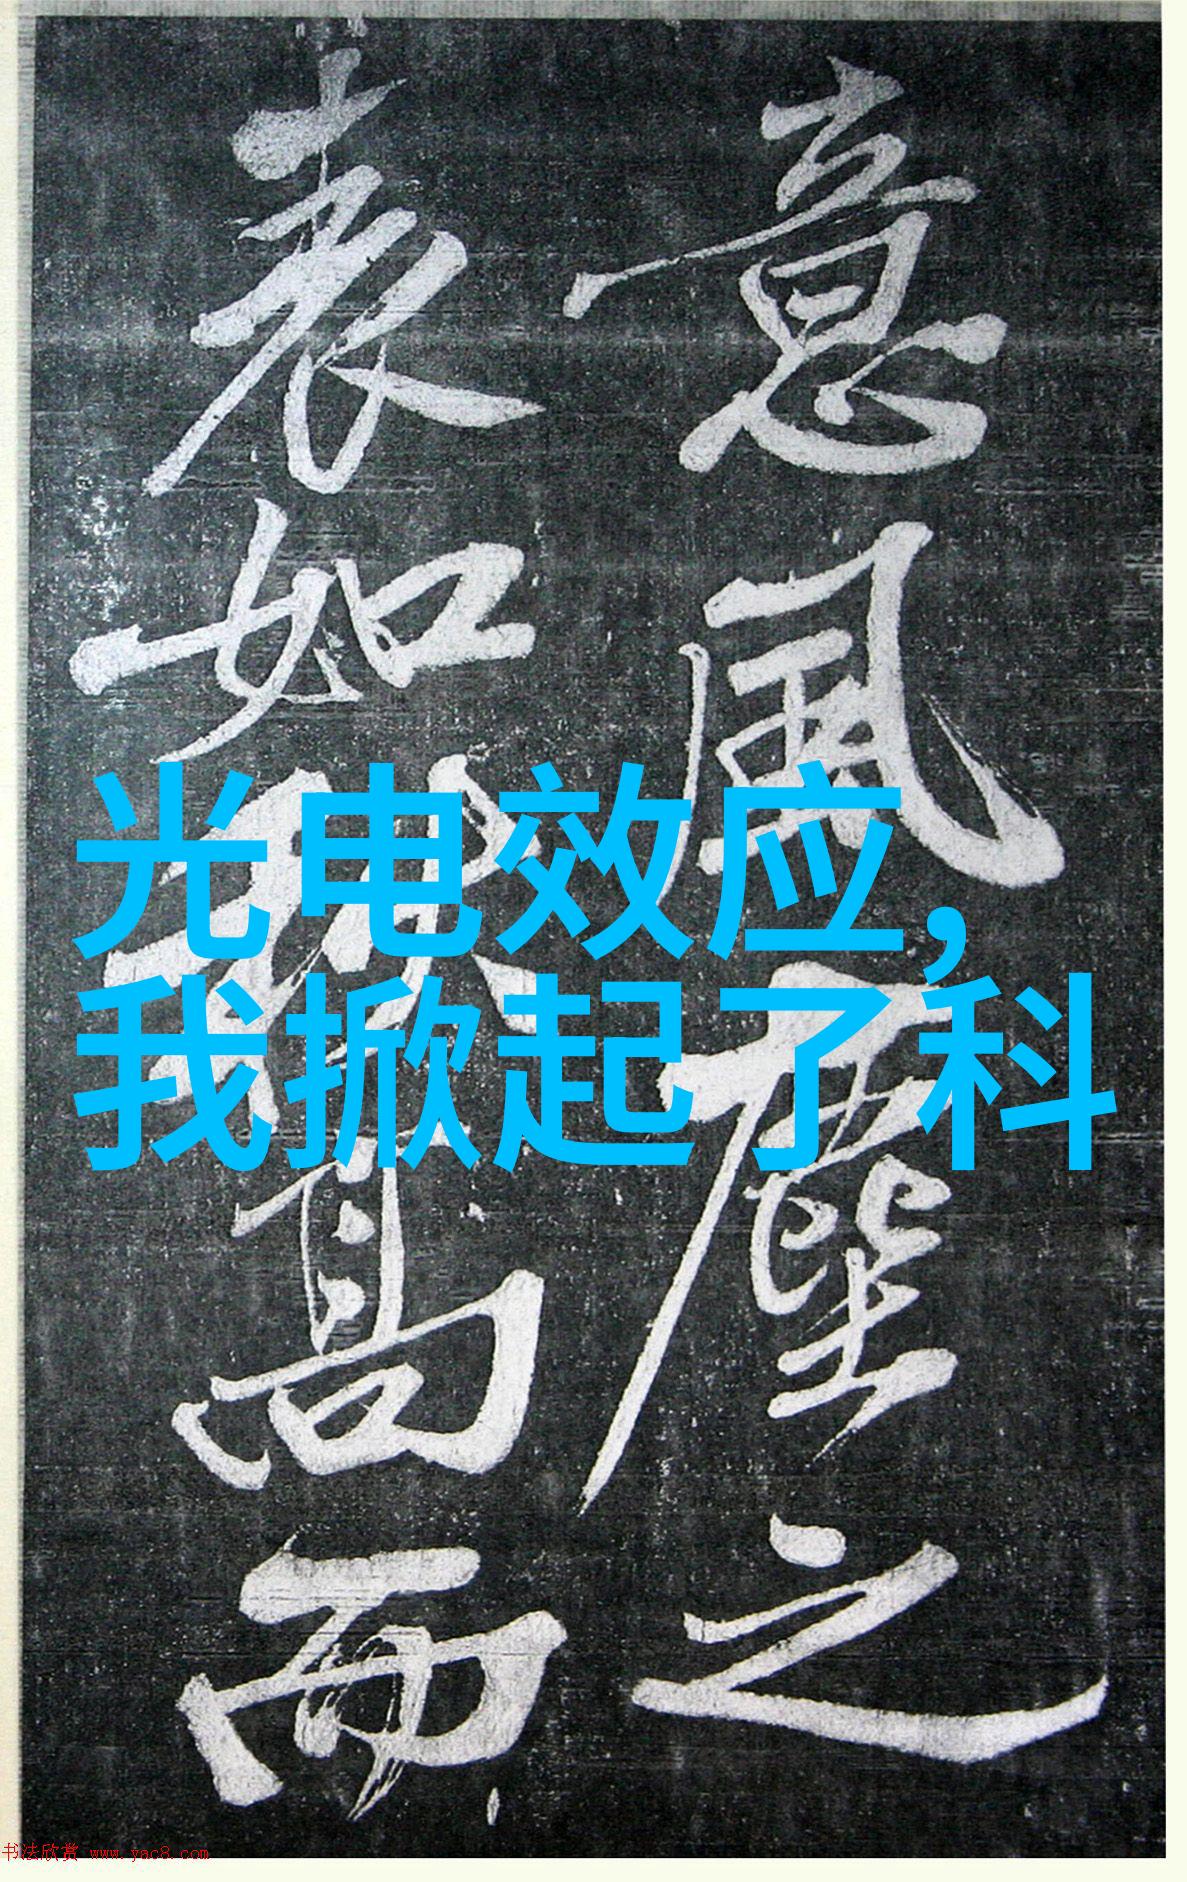 意風塵之
表如秋高而
光电效应,
我掀起了科
书法欣赏 www.yac8.com